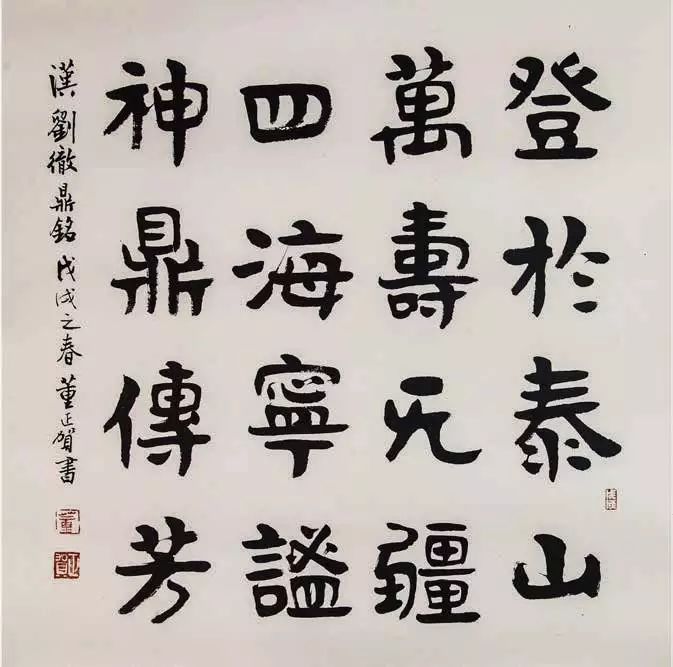 登於泰山
萬壽无疆
四海寧謐
神鼎傳芳
漢劉徹鼎銘戊戌之春董正賀書
董
正賀